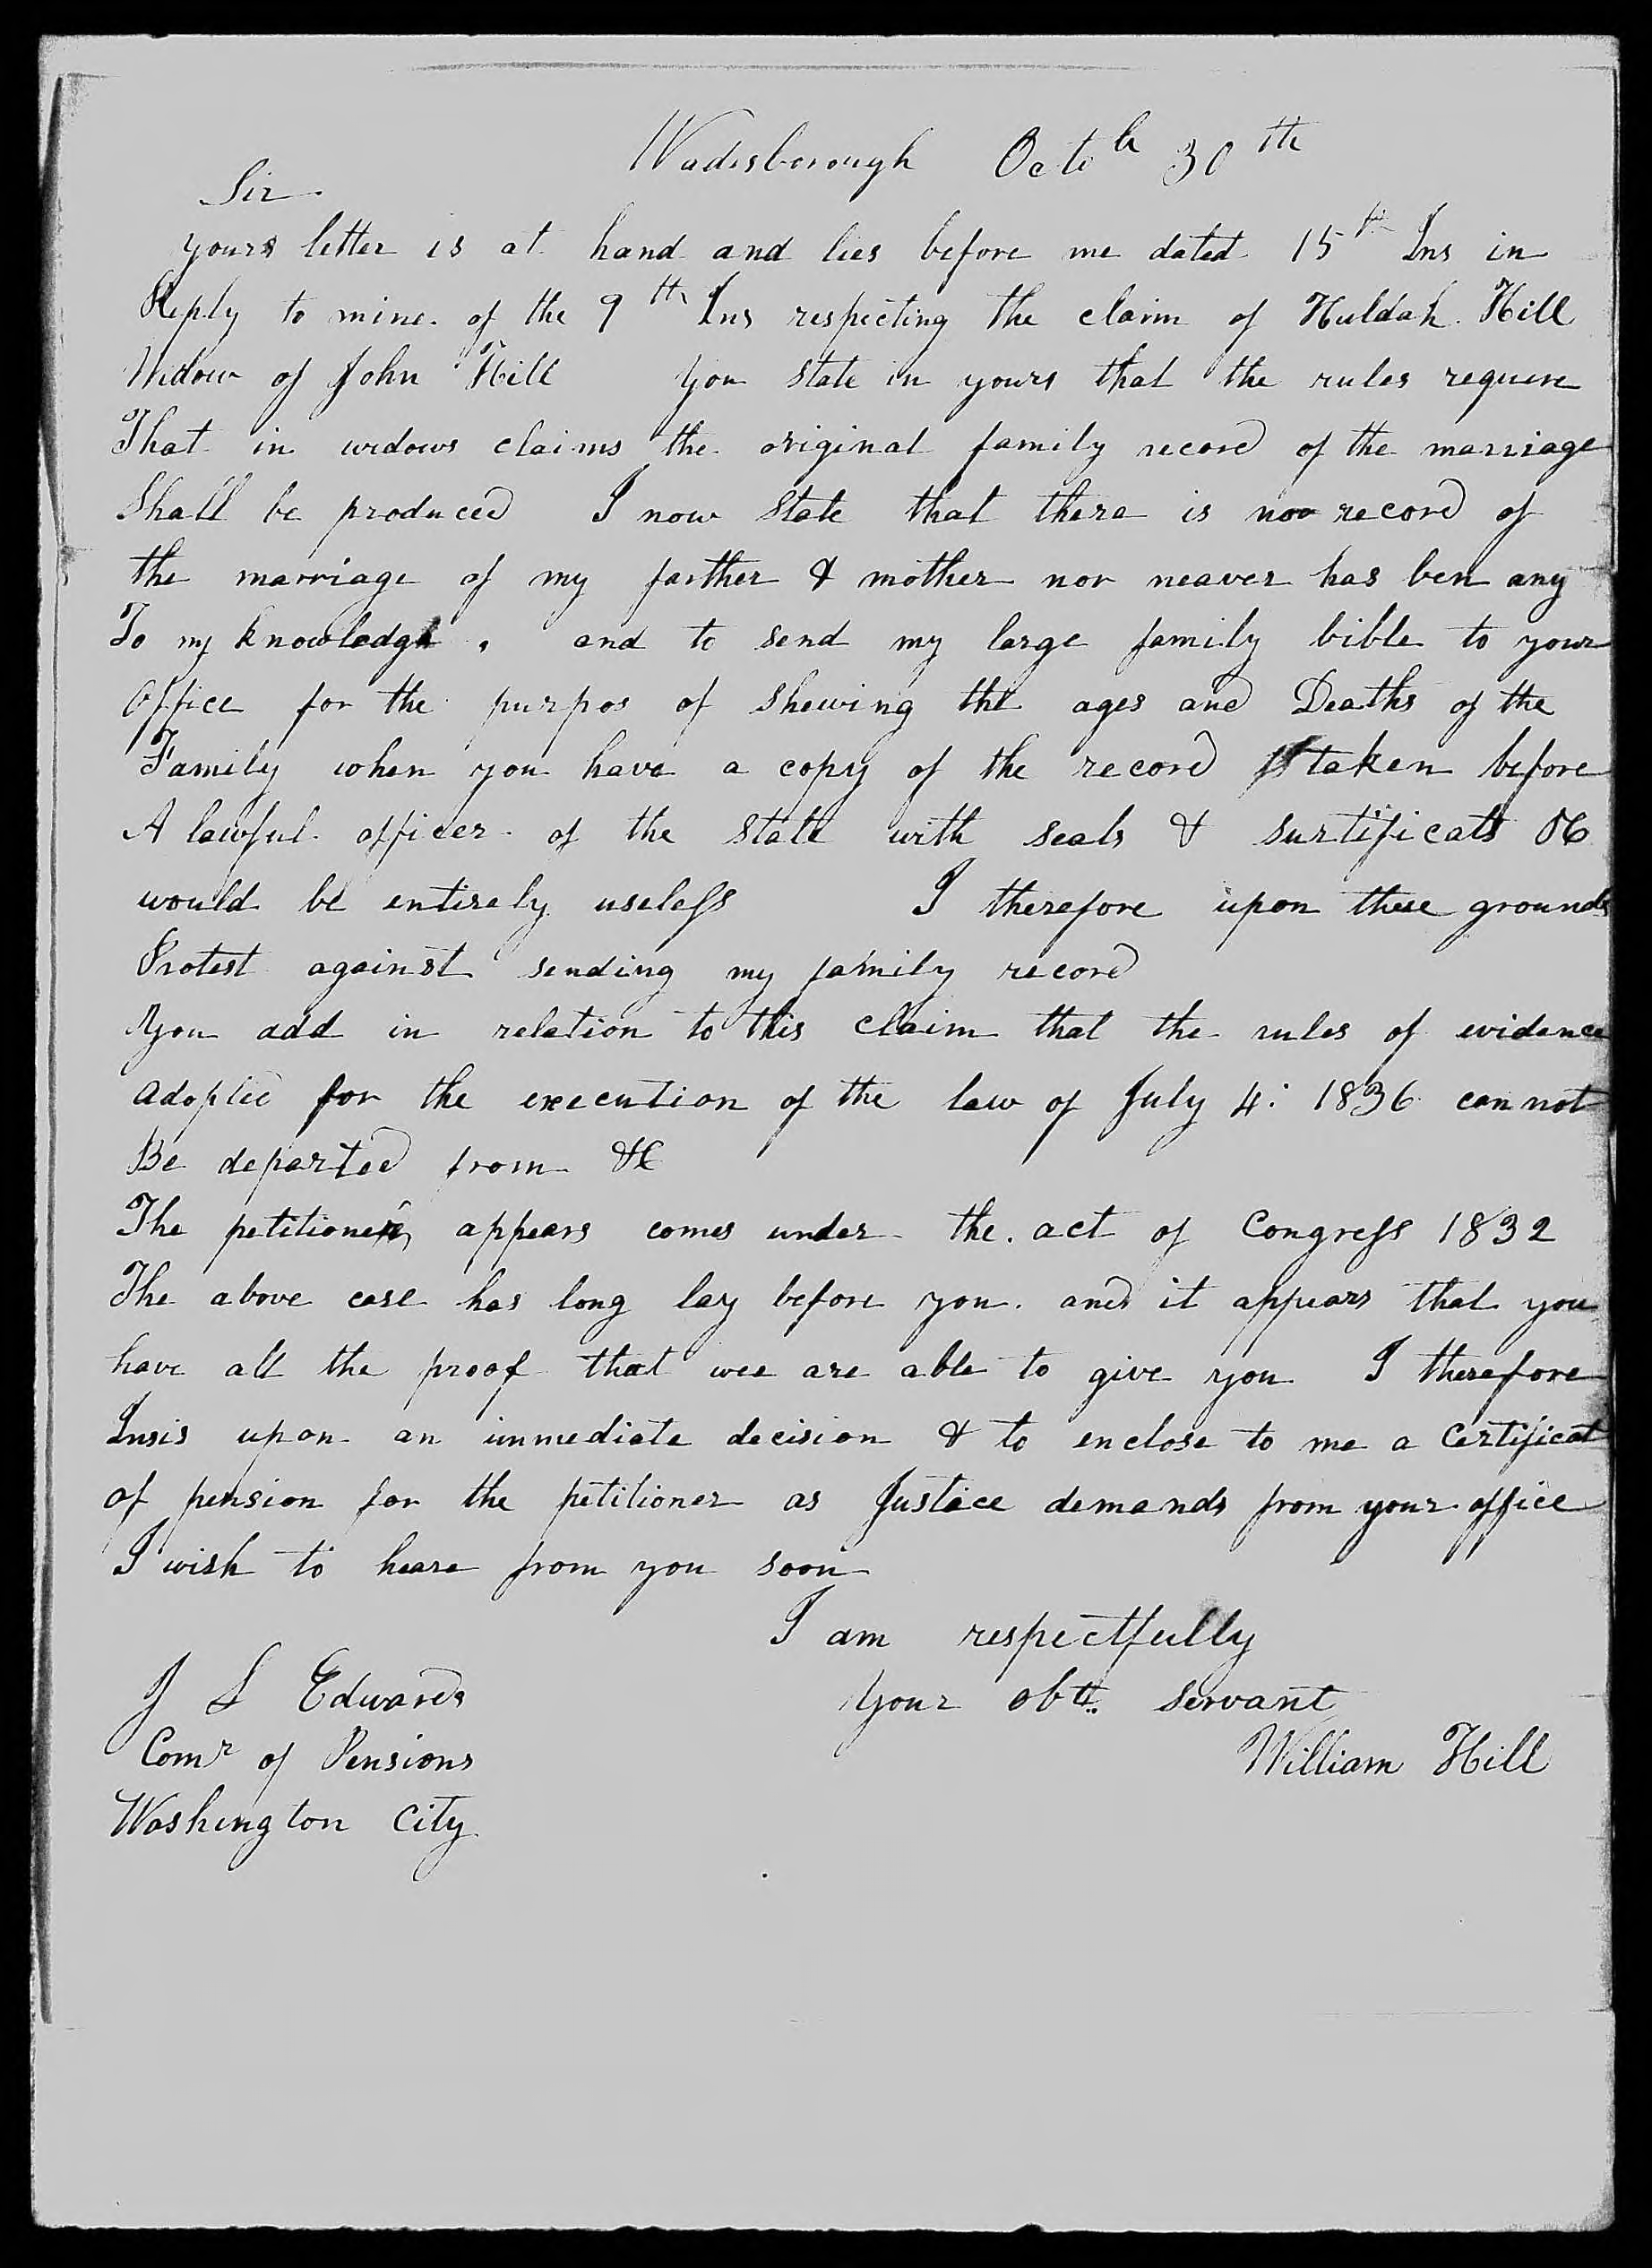 Wadesborough Octobr 30th
Sir
yours letter is at hand and lies before me dated 15th Ins in
Reply to mine of the 9th Ins respecting the claim of Huldah Hill
Widow of John Hill you state in yours that the rules requere
That in widows claims the original family record of the marriage
Shall be produced I now State that there is noo record of
the marriage of my farther & mother nor neaver has ben any
To my knowledge , and to send my large family bible to your
office for the purpos of shewing the ages and Deaths of the
Family when you have a copy of the record taken before
A lawful officer of the State with seals & surtificats &c
would be entirely useless I therefore upon these grounds
Protest against sending my family record
You add in relation to this claim that the rules of evidence
adopted for the execution of the law of July 4: 1836 can not
Be departed from &c
The petitioner appears comes under the act of Congress 1832
The above case has long lay before you. and it appears that you
have all the proof that wee are able to give you I therefore
Insis upon an immediate decision & to enclose to me a Certificat
of pension for the petitioner as Justice demands from your office
I wish to heare from you soon
I am respectfully
J L Edwards your obtt. servant
Comr of Pensions William Hill
Washington City